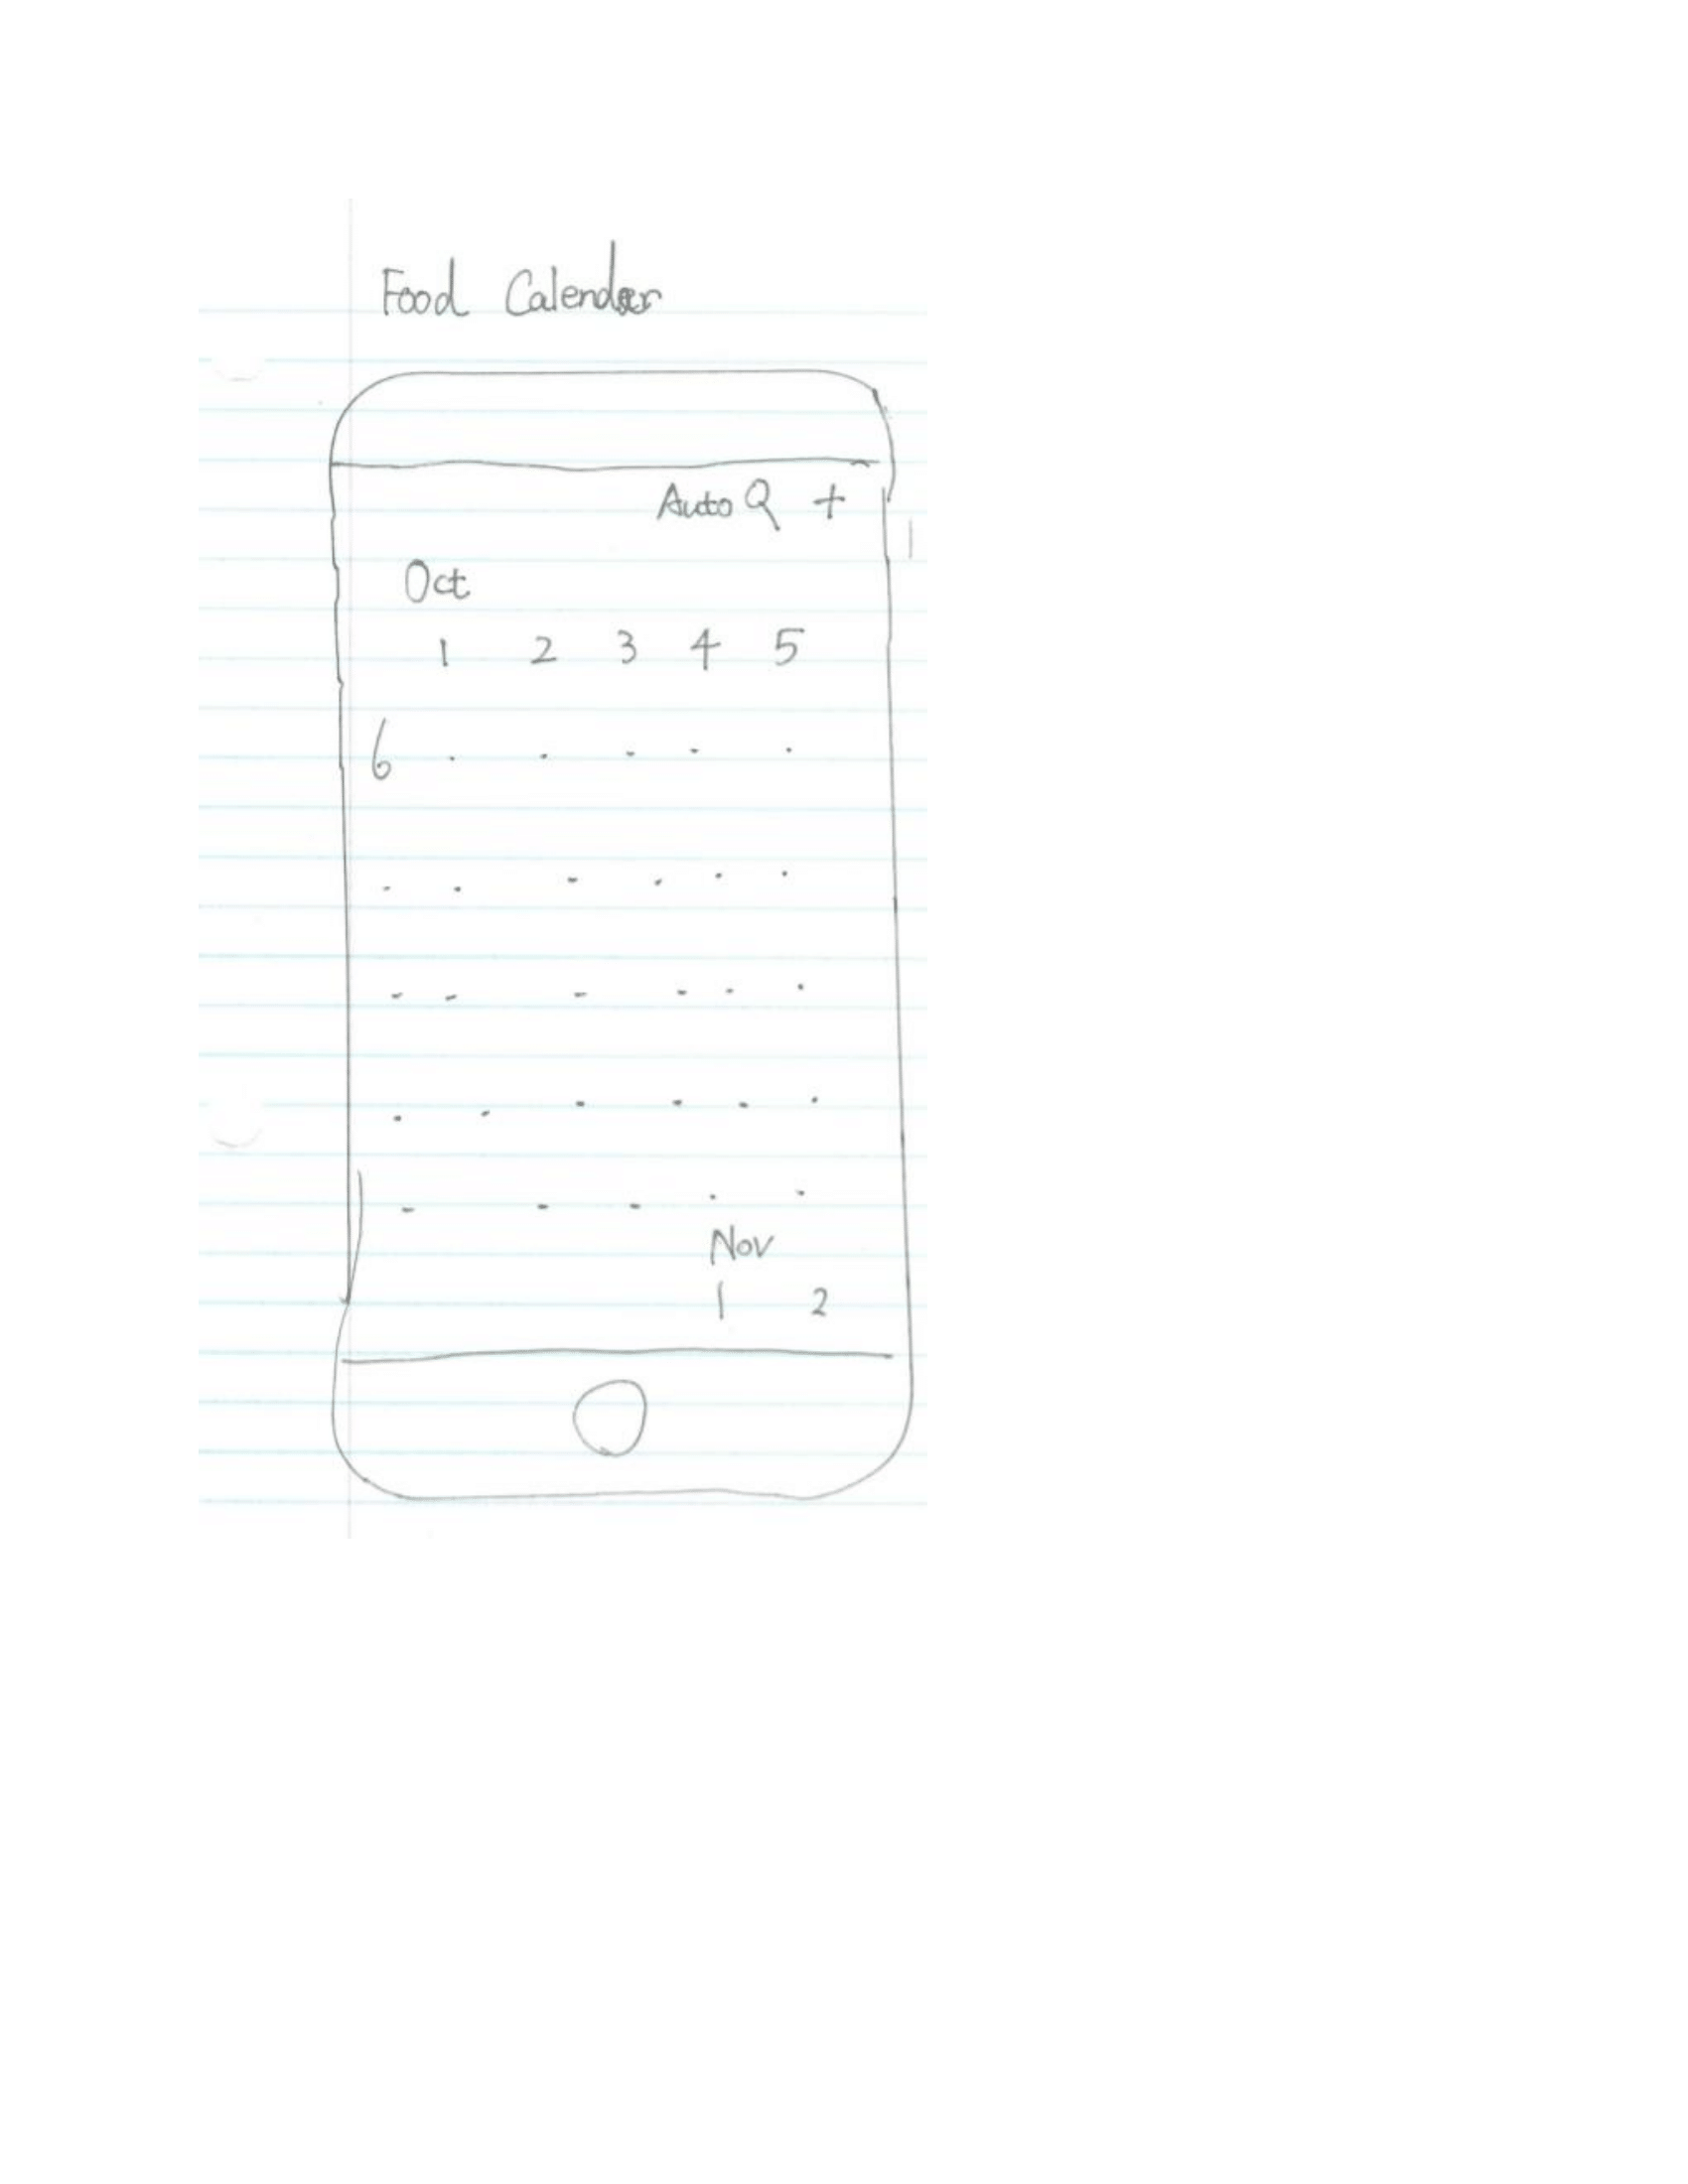 Food Calendar
Auto Q +
Oct
1 2 3 4 5
6 . . . . .
. . . . . .
- - - - - .
. . - - - .
- - - . -
Nov
1 2